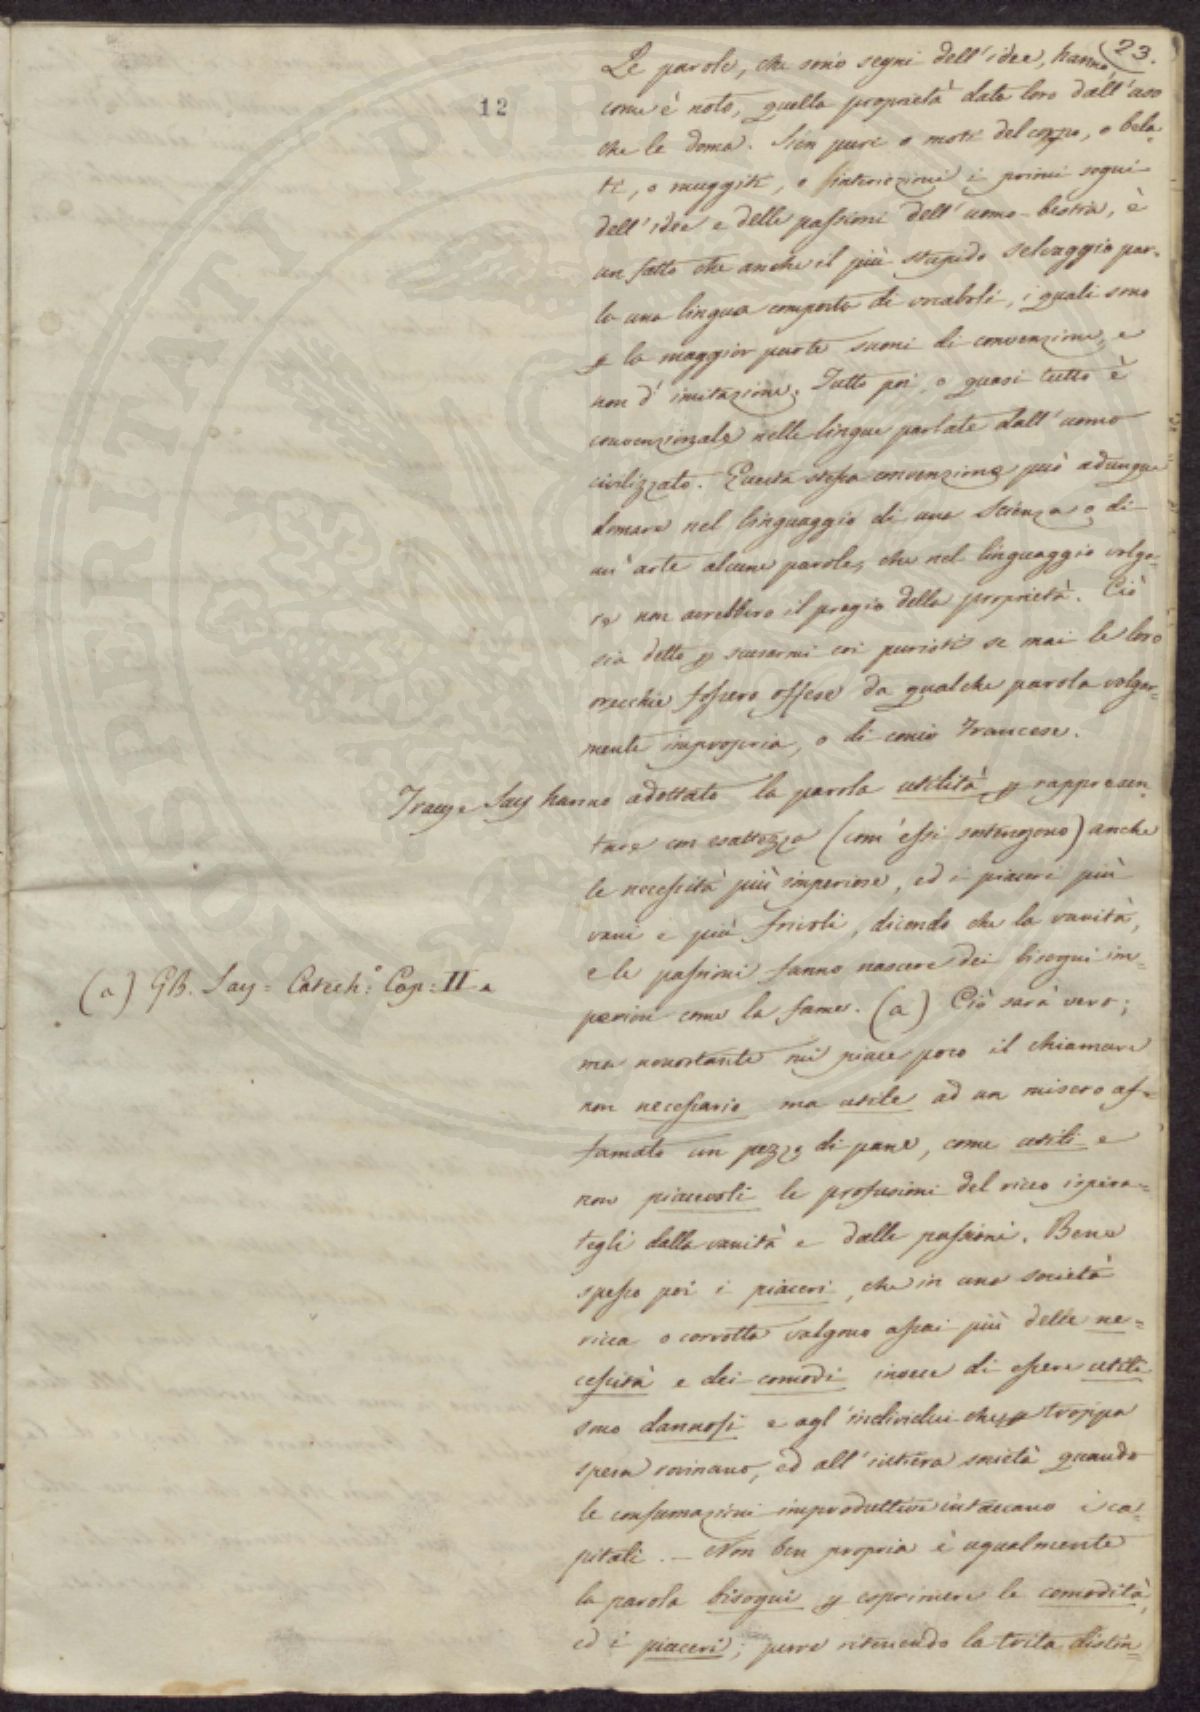 23.
12
Le parole, che sono segni dell'idee, hanno
come è noto, quella proprietà data loro dall'uso
che le doma. Sien pure o moti del corpo, o bela-
ti, o muggiti, o interiezioni i primi segni
dell'idee e delle passioni dell'uomo-bestia, è
un fatto che anche il più stupido selvaggio par-
la una lingua composta di vocaboli, i quali sono
p la maggior parte suoni di convenzione, e
non d'imitazione. Tutto poi, o quasi tutto è
convenzionale nelle lingue parlate dall'uomo
civilizzato. Questa stessa convenzione può adunque
domare nel linguaggio di una Scienza o di
un'arte alcune parole, che nel linguaggio volga-
re non avrebbero il pregio della proprietà. Ciò
sia detto p scusarmi coi puristi se mai le loro
orecchie fossero offese da qualche parola volgar-
mente impropria, o di conio Francese.
Tracy e Say hanno adottato la parola utilità p rappresen-
tare con esattezza (com'essi sostengono) anche
le necessità più imperiose, ed i piaceri più
vani e più frivoli, dicendo che la vanità,
e le passioni fanno nascere dei bisogni im-
periosi come la fame. (a) Ciò sarà vero;
(a) GB. Say = Catech:º Cap: II.
ma nonostante mi piace poco il chiamare
non necessario ma utile ad un misero af-
famato un pezzo di pane, come utili e
non piacevoli le profusioni del ricco ispira-
tegli dalla vanità e dalle passioni. Bene
spesso poi i piaceri, che in una società
ricca o corrotta valgono assai più delle ne-
cessità e dei comodi invece di essere utili
sono dannosi e agl'individui che p troppa
spesa rovinano, ed all'intiera società quando
le consumazioni improduttive intaccano i ca-
pitali. — Non ben propria è ugualmente
la parola bisogni p esprimere le comodità,
ed i piaceri; pure ritenendo la trita distin-